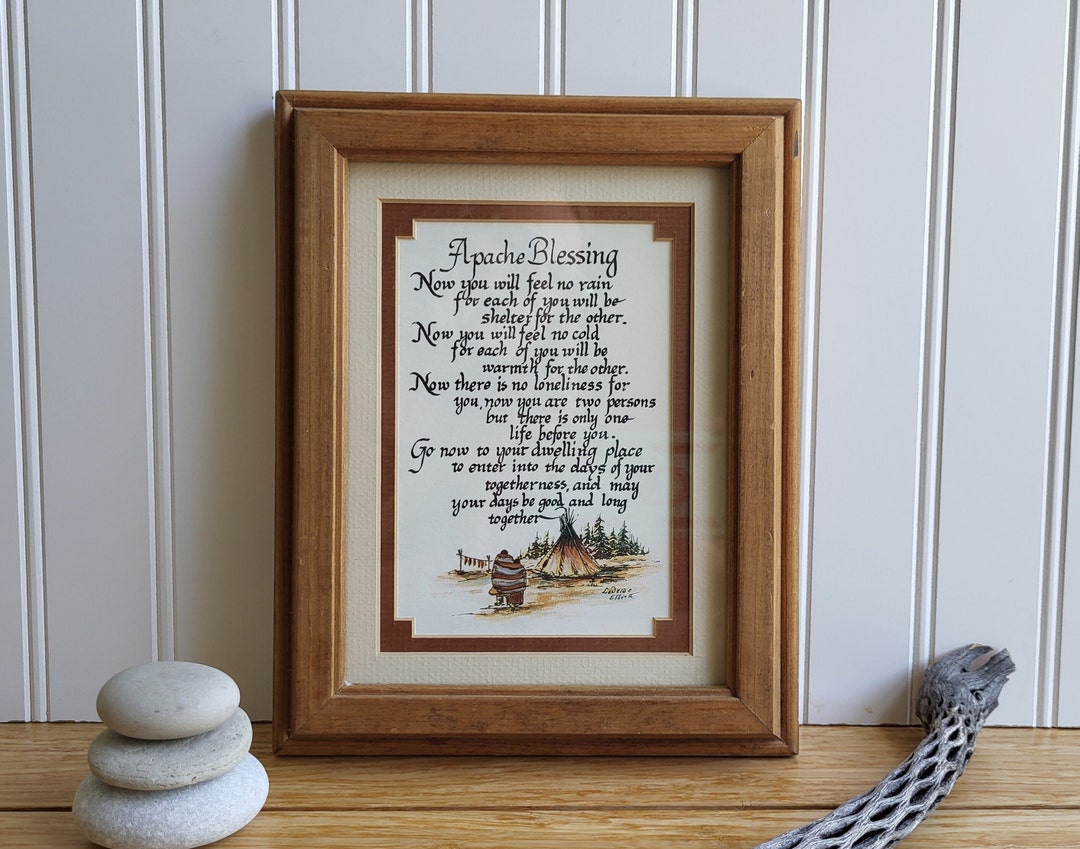 Apache Blessing
Now you will feel no rain
for each of you will be
shelter for the other.
Now you will feel no cold
for each of you will be
warmth for the other.
Now there is no loneliness for
you, now you are two persons
but there is only one
life before you.
Go now to your dwelling place
to enter into the days of your
togetherness, and may
your days be good and long
together